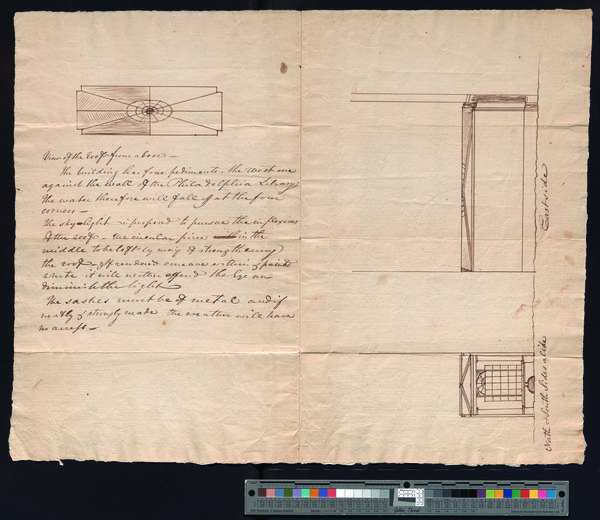 View of the roof from above –
The building has four pediments, the west one
against the wall of the Philadelphia Library
The water therefore will fall off at the four
corners –
The sky-light is proposed to pursue the
of the roof – the circular piece in the
middle to be left by way of strengthening
the roof – & if rendered concave within & painted
white it will neither offend the Eye or
diminish the light
The sashes must be of metal and if
neatly & strongly made the weather will have
no
East side
North & South Sides alike